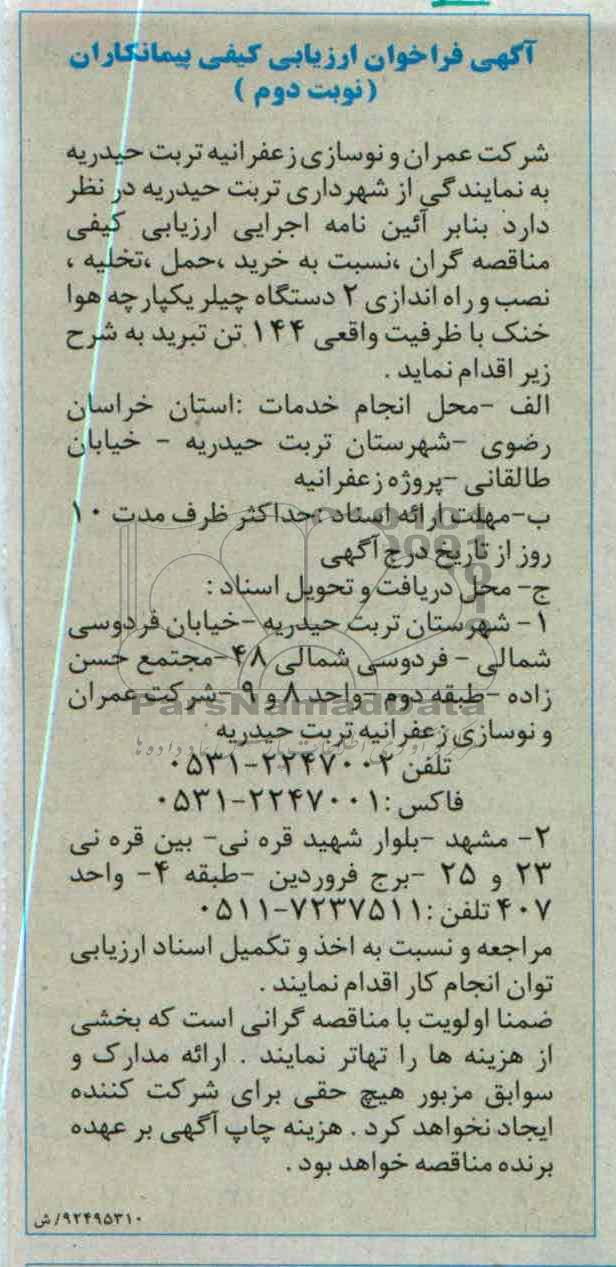 آگهی فراخوان ارزیابی کیفی پیمانکاران
(نوبت دوم )
شرکت عمران و نوسازی زعفرانیه تربت حیدریه
به نمایندگی از شهرداری تربت حیدریه در نظر
دارد بنابر آئین نامه اجرایی ارزیابی کیفی
مناقصه گران ،نسبت به خرید ،حمل ،تخلیه ،
نصب و راه اندازی ۲ دستگاه چیلر یکپارچه هوا
خنک با ظرفیت واقعی ۱۴۴ تن تبرید به شرح
زیر اقدام نماید .
الف -محل انجام خدمات :استان خراسان
رضوی -شهرستان تربت حیدریه - خیابان
طالقانی -پروژه زعفرانیه
ب-مهلت ارائه اسناد :حداکثر ظرف مدت ۱۰
روز از تاریخ درج آگهی
ج- محل دریافت و تحویل اسناد :
۱- شهرستان تربت حیدریه -خیابان فردوسی
شمالی - فردوسی شمالی ۴۸-مجتمع حسن
زاده -طبقه دوم -واحد ۸ و ۹ -شرکت عمران
ParsNamadData
و نوسازی زعفرانیه تربت حیدریه
تلفن ۲۲۴۷۰۰۲-۰۵۳۱
فاکس :۲۲۴۷۰۰۱-۰۵۳۱
۲- مشهد -بلوار شهید قره نی- بین قره نی
۲۳ و ۲۵ -برج فروردین -طبقه ۴- واحد
۴۰۷ تلفن :۷۲۳۷۵۱۱-۰۵۱۱
مراجعه و نسبت به اخذ و تکمیل اسناد ارزیابی
توان انجام کار اقدام نمایند .
ضمنا اولویت با مناقصه گرانی است که بخشی
از هزینه ها را تهاتر نمایند . ارائه مدارک و
سوابق مزبور هیچ حقی برای شرکت کننده
ایجاد نخواهد کرد . هزینه چاپ آگهی بر عهده
برنده مناقصه خواهد بود .
۹۲۴۹۵۳۱۰/ش